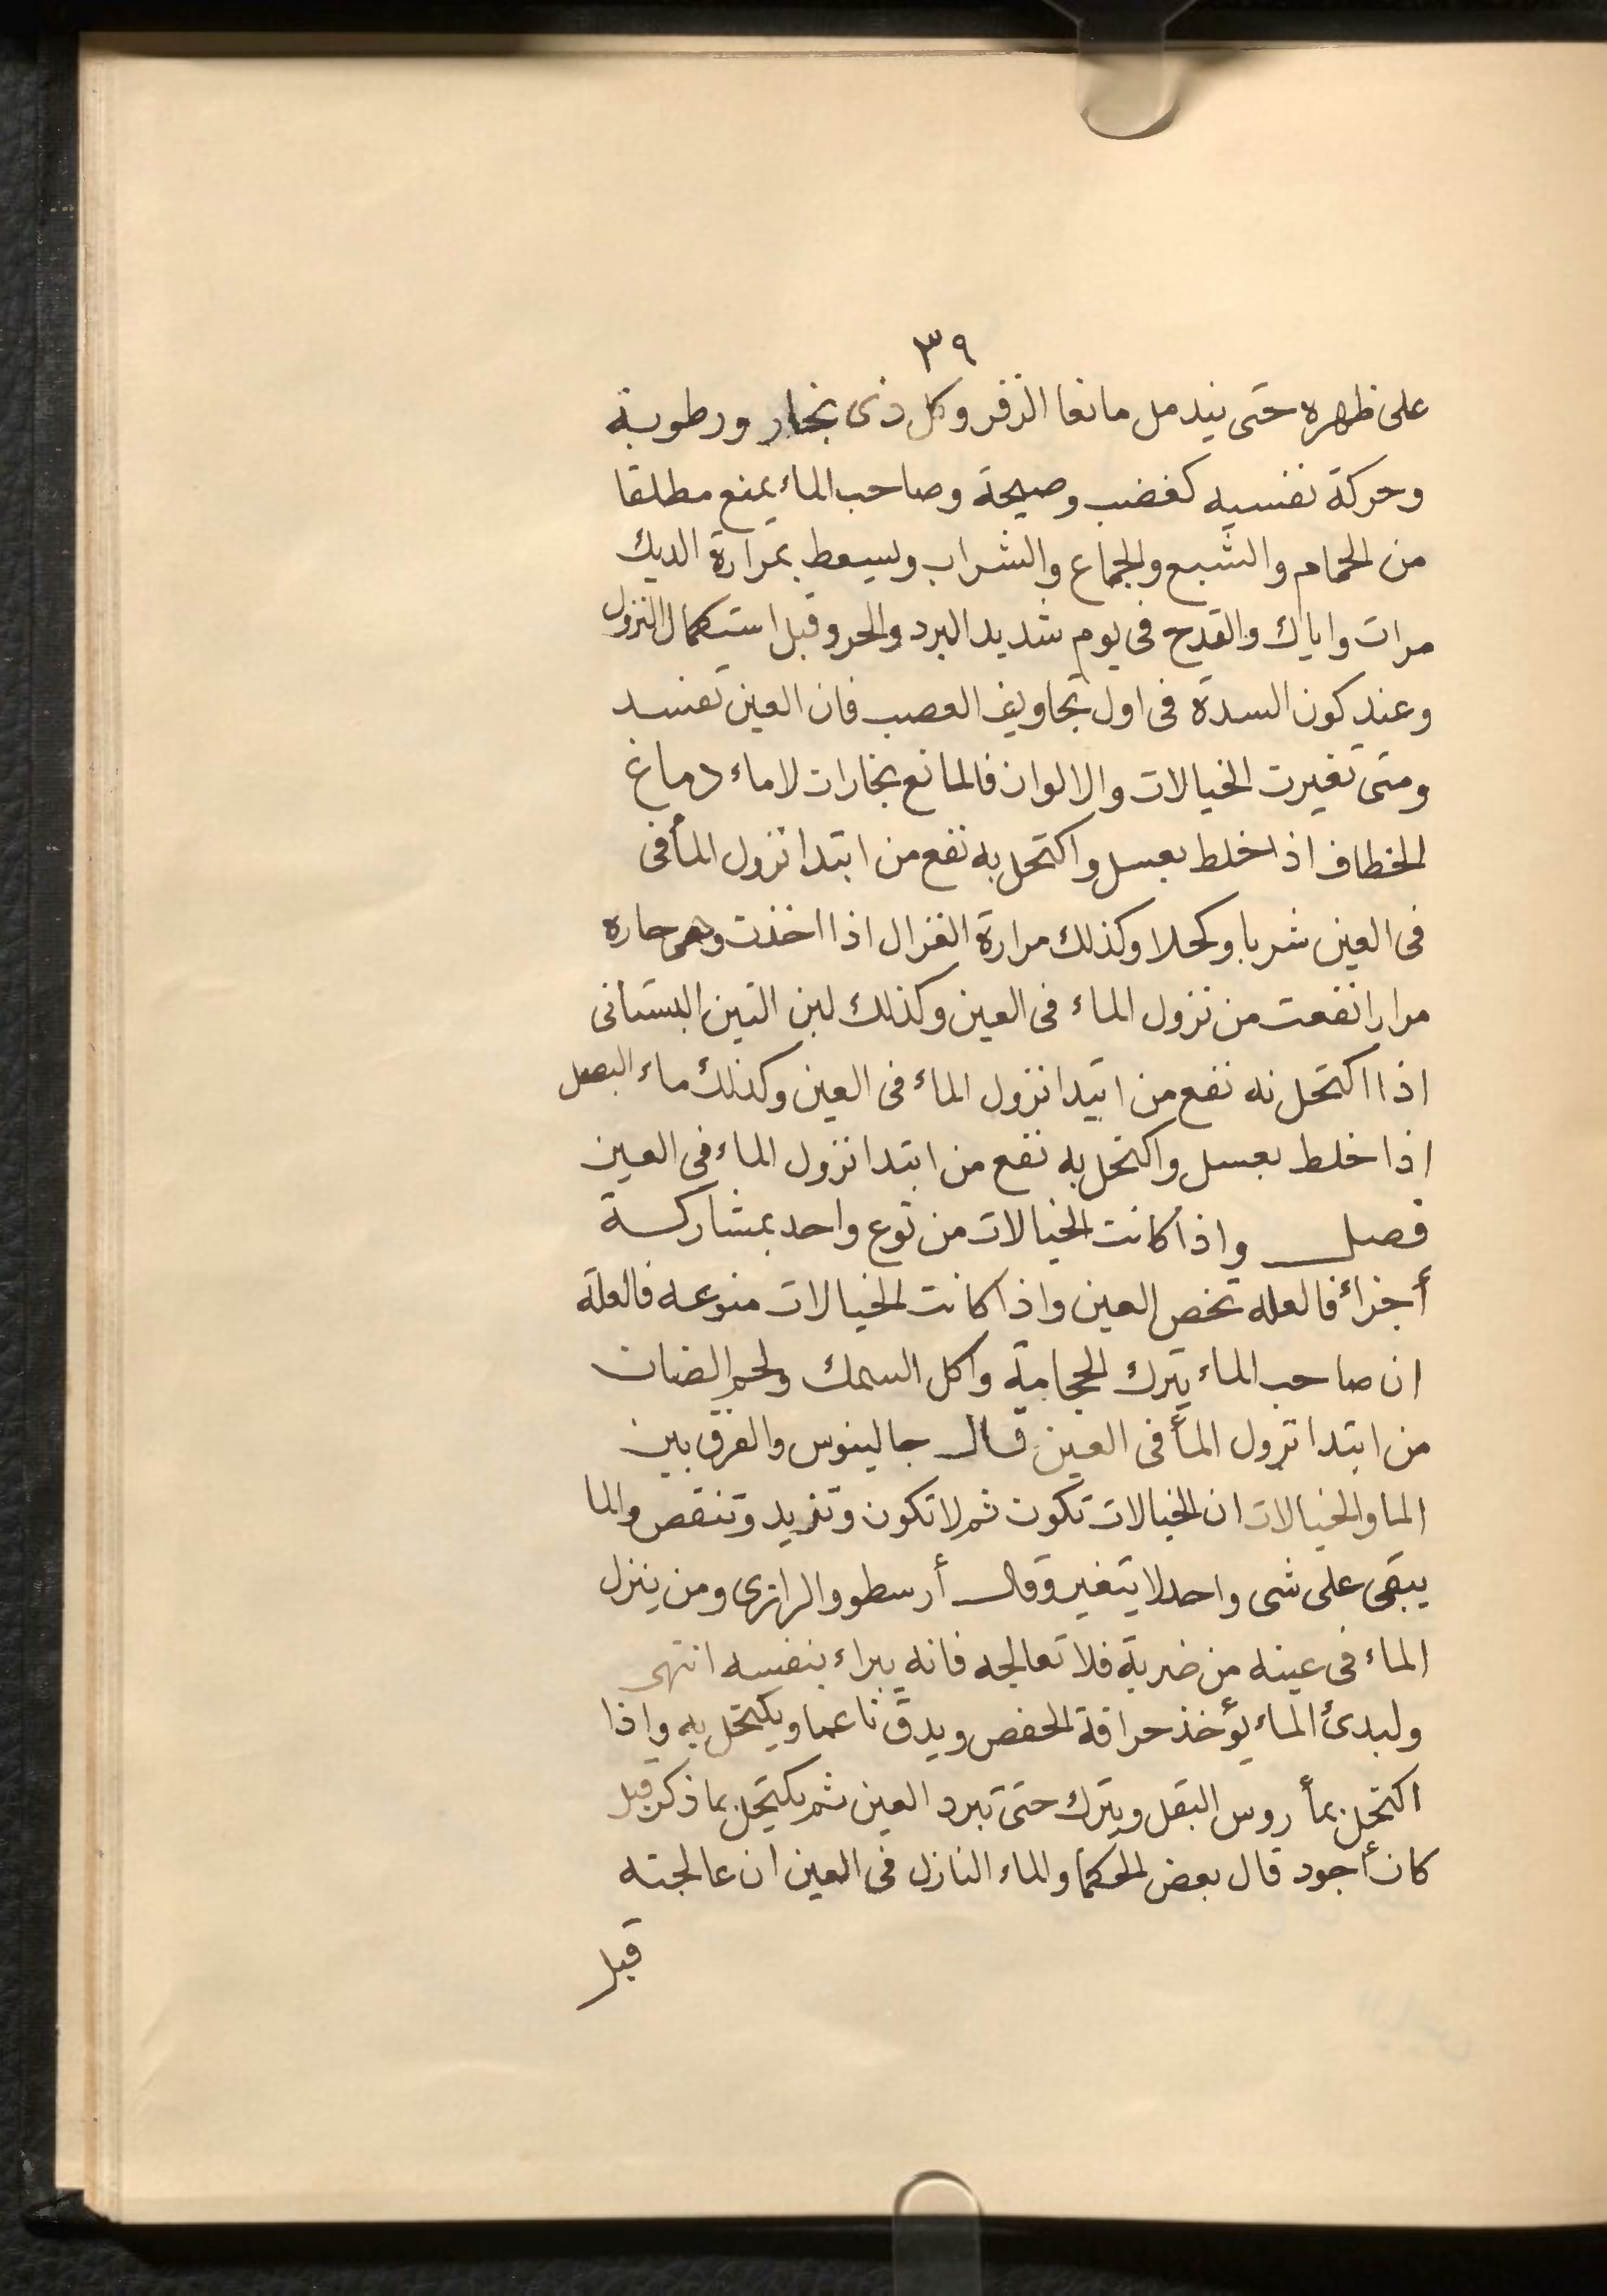 ٣٩
على ظهره حتى يندمل مانعا الزفر وكل ذى بخار ورطوبة
وحركة نفسيه كغضب وصيحة وصاحب الماء يمنع مطلقا
من الحمام والشبع والجماع والشراب وليسعط بمرارة الديك
مرات واياك والقدح فى يوم شديد البرد والحر وقبل استكمال النزول
وعند كون السدة فى اول تجاويف العصب فان العين تفسد
ومتى تغيرت الخيالات والالوان فالمانع بخارات لا ماء دماغ
الخطاف اذا خلط بعسل واكتحل به نفع من ابتدا نزول المأ فى
فى العين شربا وكحلا وكذلك مرارة الغزال اذا اخذت وهى حاره
مرارا نفعت من نزول الماء فى العين وكذلك لبن التين البستانى
اذا اكتحل نه نفع من ابتدا نزول الماء فى العين وكذلك ماء البصل
اذا خلط بعسل واكتحل به نفع من ابتدا نزول الماء فى العين
فصل واذا كانت الخيالات من نوع واحد بمشاركة
أجزائ فالعله تخص العين واذا كانت الخيالات منوعه فالعلة
ان صاحب الماء يترك الحجامة واكل السمك ولحم الضان
من ابتدا نزول المأ فى العين قال جالينوس والفرق بين
الما والخيالات ان الخيالات تكون ثم لا تكون وتزيد وتنقص والما
يبقى على شى واحد لا يتغير وقال أرسطو والرازى ومن ينزل
الماء فى عينه من ضربة فلا تعالجه فانه يبراء بنفسه انتهى
ولبدئ الماء يؤخذ حراقة الحفص ويدق ناعما ويكتحل به واذا
اكتحل بمأ روس البقل ويترك حتى تبرد العين ثم يكتحل بما ذكر قبل
كان أجود قال بعض الحكما والماء النازل فى العين ان عالجته
قبل